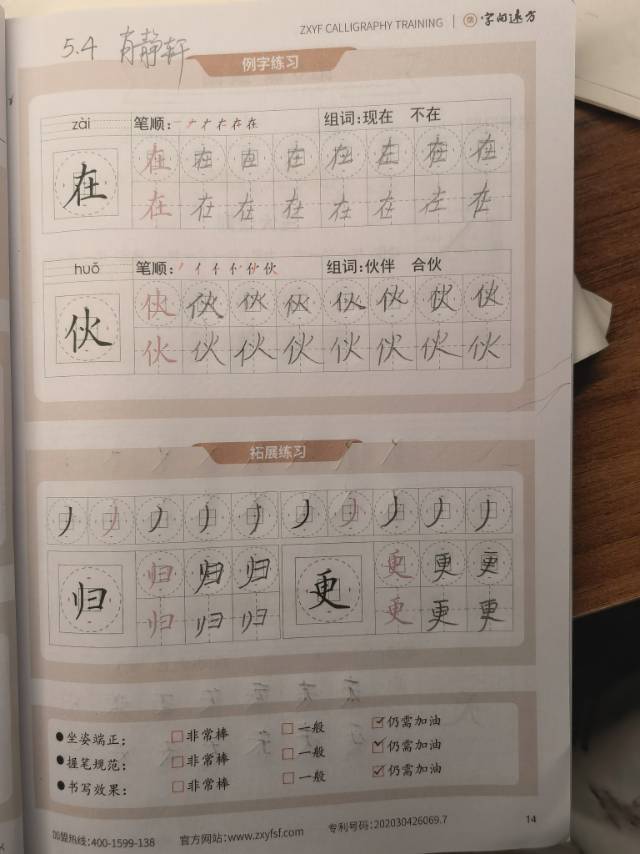 ZXYF CALLIGRAPHY TRAINING 字间远方
5.4 静轩
例字练习
zài 笔顺: 组词:现在 不在
在 在 在 在 在 在 在 在 在
在 在 在 在 在 在 在 在
huǒ 笔顺: 组词:伙伴 合伙
伙 伙 伙 伙 伙 伙 伙 伙 伙
伙 伙 伙 伙 伙 伙 伙 伙
拓展练习
丿 丿 丿 丿 丿 丿 丿 丿 丿 丿
归 归 归 归 更 更 更 更
归 归 归 更 更 更
坐姿端正: 非常棒 一般 仍需加油
握笔规范: 非常棒 一般 仍需加油
书写效果: 非常棒 一般 仍需加油
加盟热线:400-1599-138 官方网站:www.zxyfsf.com 专利号码:202030426069.7 14